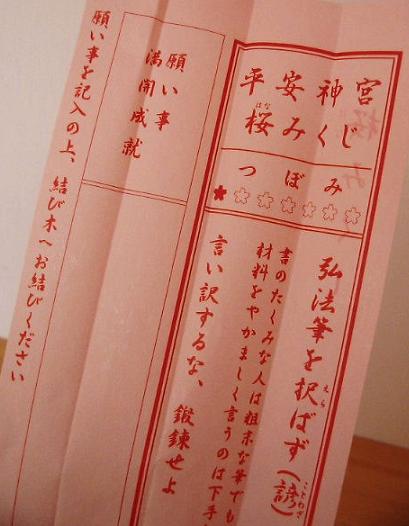 平安神宮
はな
桜みくじ
つぼみ
弘法筆を択ばず(諺)
えら
ことわざ
書のたくみな人は粗末な筆でも
材料をやかましく言うのは下手
言い訳するな、鍛錬せよ
願い事
満開成就
願い事を記入の上、結び木へお結びください